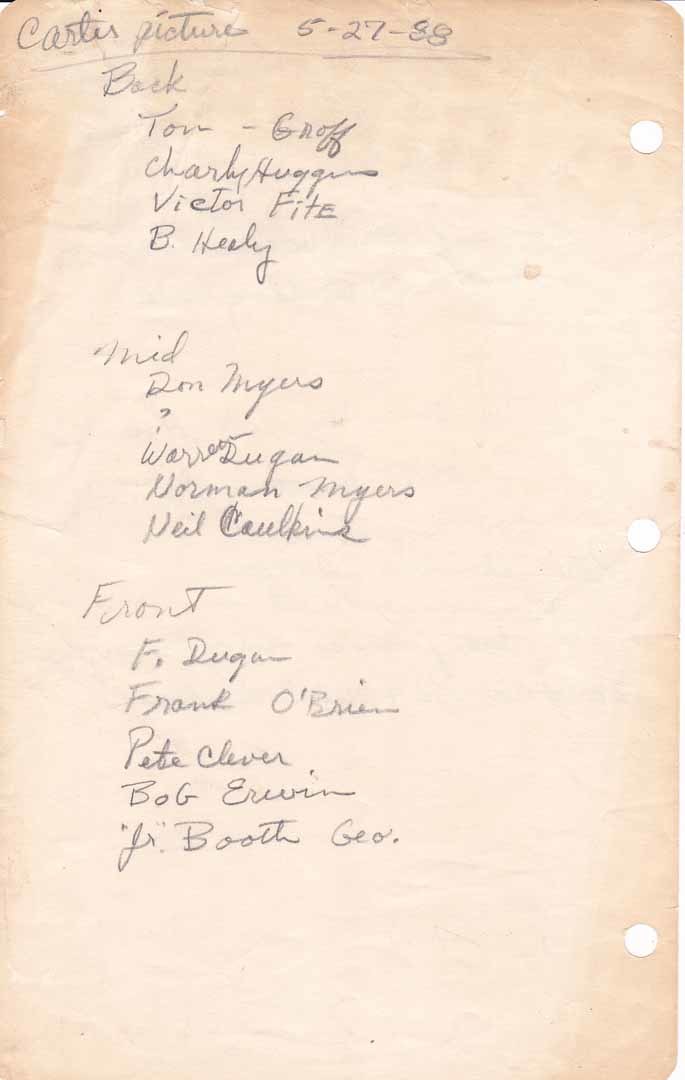 Carter picture 5-27-88
Back
Tom - Groff
Charly Huggins
Victor Fite
B. Healy
Mid
Don Myers
?
Warren Dugan
Norman Myers
Neil Caulkins
Front
F. Dugan
Frank O'Brien
Pete Clever
Bob Erwin
"Jr." Booth Geo.